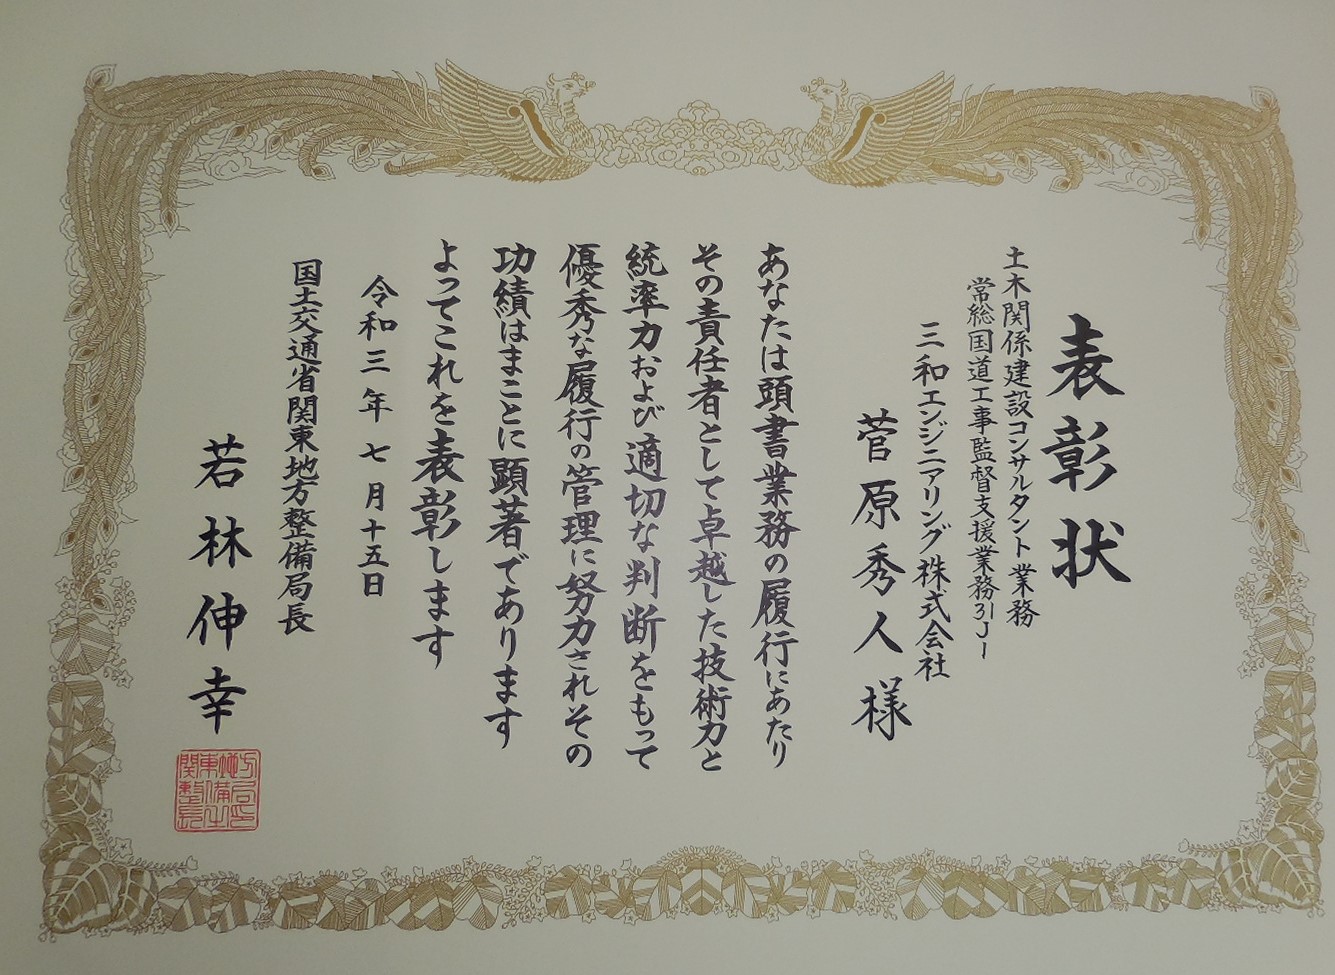 表彰状
土木関係建設コンサルタント業務
常総国道工事監督支援業務31J1
三和エンジニアリング株式会社
菅原秀人様
あなたは頭書業務の履行にあたり
その責任者として卓越した技術力と
統率力および適切な判断をもって
優秀な履行の管理に努力されその
功績はまことに顕著であります
よってこれを表彰します
令和三年七月十五日
国土交通省関東地方整備局長
若林伸幸